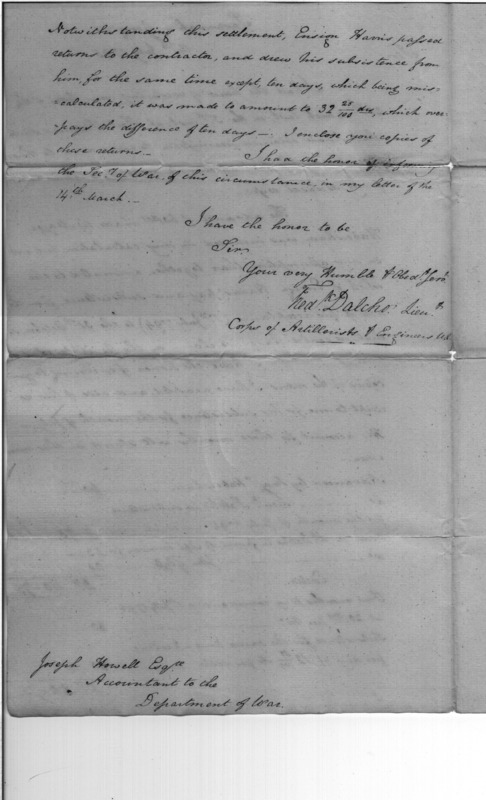 Notwithstanding this settlement, Ensign Harris passed
returns to the contractor, and drew his subsistence from
him, for the same time except, ten days, which being mis-
-calculated, it was made to amount to 32 drs, which over
pays the difference of ten days —. I enclose you copies of
these returns. — I had the honor of informing
the Secy of War, of this circumstance, in my letter of the
14th March. —
I have the honor to be
Sir,
Your very Humble & Obedt Servt
Fredk Dalcho. Lieut
Corps of Artillerists & Engineers US
Joseph Howell Esqre
Accountant to the
Department of War.